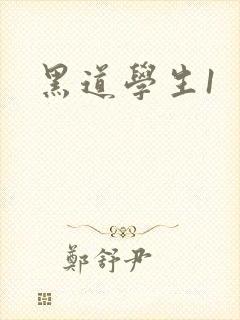 黑道學生1
鄭舒尹